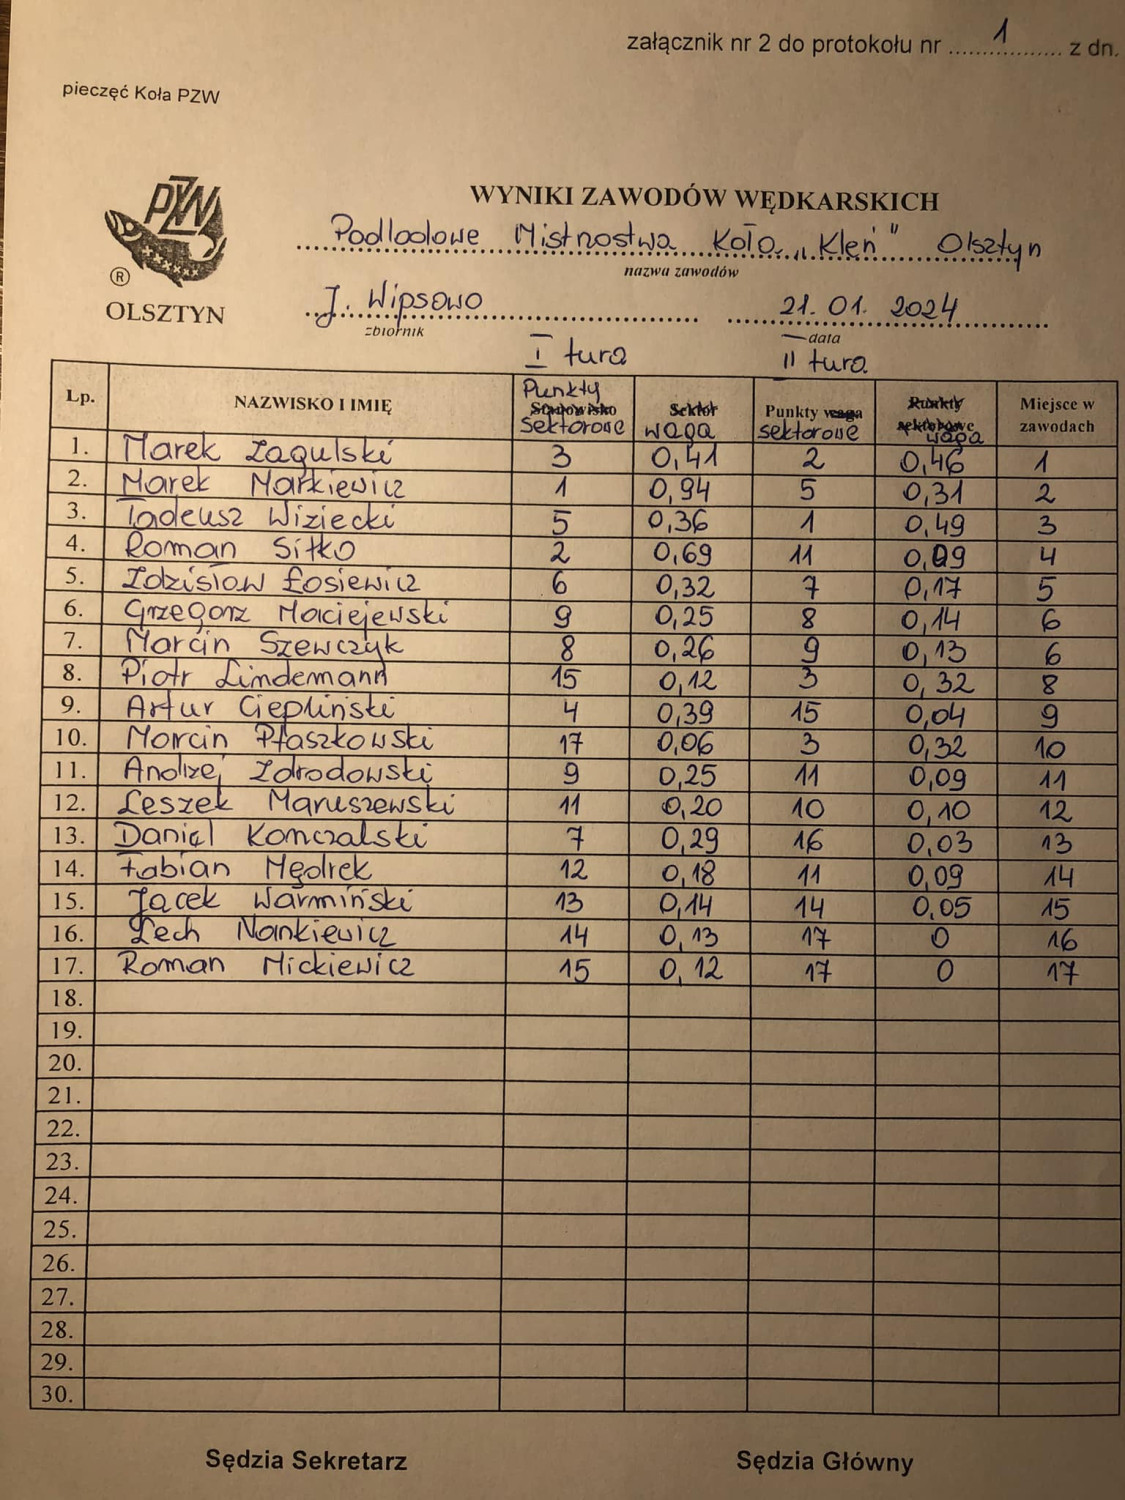 załącznik nr 2 do protokołu nr 1 z dn.
pieczęć Koła PZW
PZW
®
OLSZTYN
WYNIKI ZAWODÓW WĘDKARSKICH
Podlodowe Mistrzostwa Koło „Kleń" Olsztyn
nazwa zawodów
J. Wipsowo 21. 01. 2024
zbiornik data
I tura II tura
Lp. NAZWISKO I IMIĘ Punkty Stanowisko sektorowe Sektor waga Punkty waga sektorowe Punkty sektorowe waga Miejsce w zawodach
1. Marek Zagulski 3 0,41 2 0,46 1
2. Marek Markiewicz 1 0,94 5 0,31 2
3. Tadeusz Wiziecki 5 0,36 1 0,49 3
4. Roman Sitko 2 0,69 11 0,09 4
5. Zdzisław Łosiewicz 6 0,32 7 0,17 5
6. Grzegorz Maciejewski 9 0,25 8 0,14 6
7. Marcin Szewczyk 8 0,26 9 0,13 6
8. Piotr Lindemann 15 0,12 3 0,32 8
9. Artur Ciepliński 4 0,39 15 0,04 9
10. Marcin Ptaszkowski 17 0,06 3 0,32 10
11. Andrzej Zdrodowski 9 0,25 11 0,09 11
12. Leszek Maruszewski 11 0,20 10 0,10 12
13. Daniel Komczalski 7 0,29 16 0,03 13
14. Fabian Mędrek 12 0,18 11 0,09 14
15. Jacek Warmiński 13 0,14 14 0,05 15
16. Lech Nankiewicz 14 0,13 17 0 16
17. Roman Mickiewicz 15 0,12 17 0 17
18.
19.
20.
21.
22.
23.
24.
25.
26.
27.
28.
29.
30.
Sędzia Sekretarz Sędzia Główny